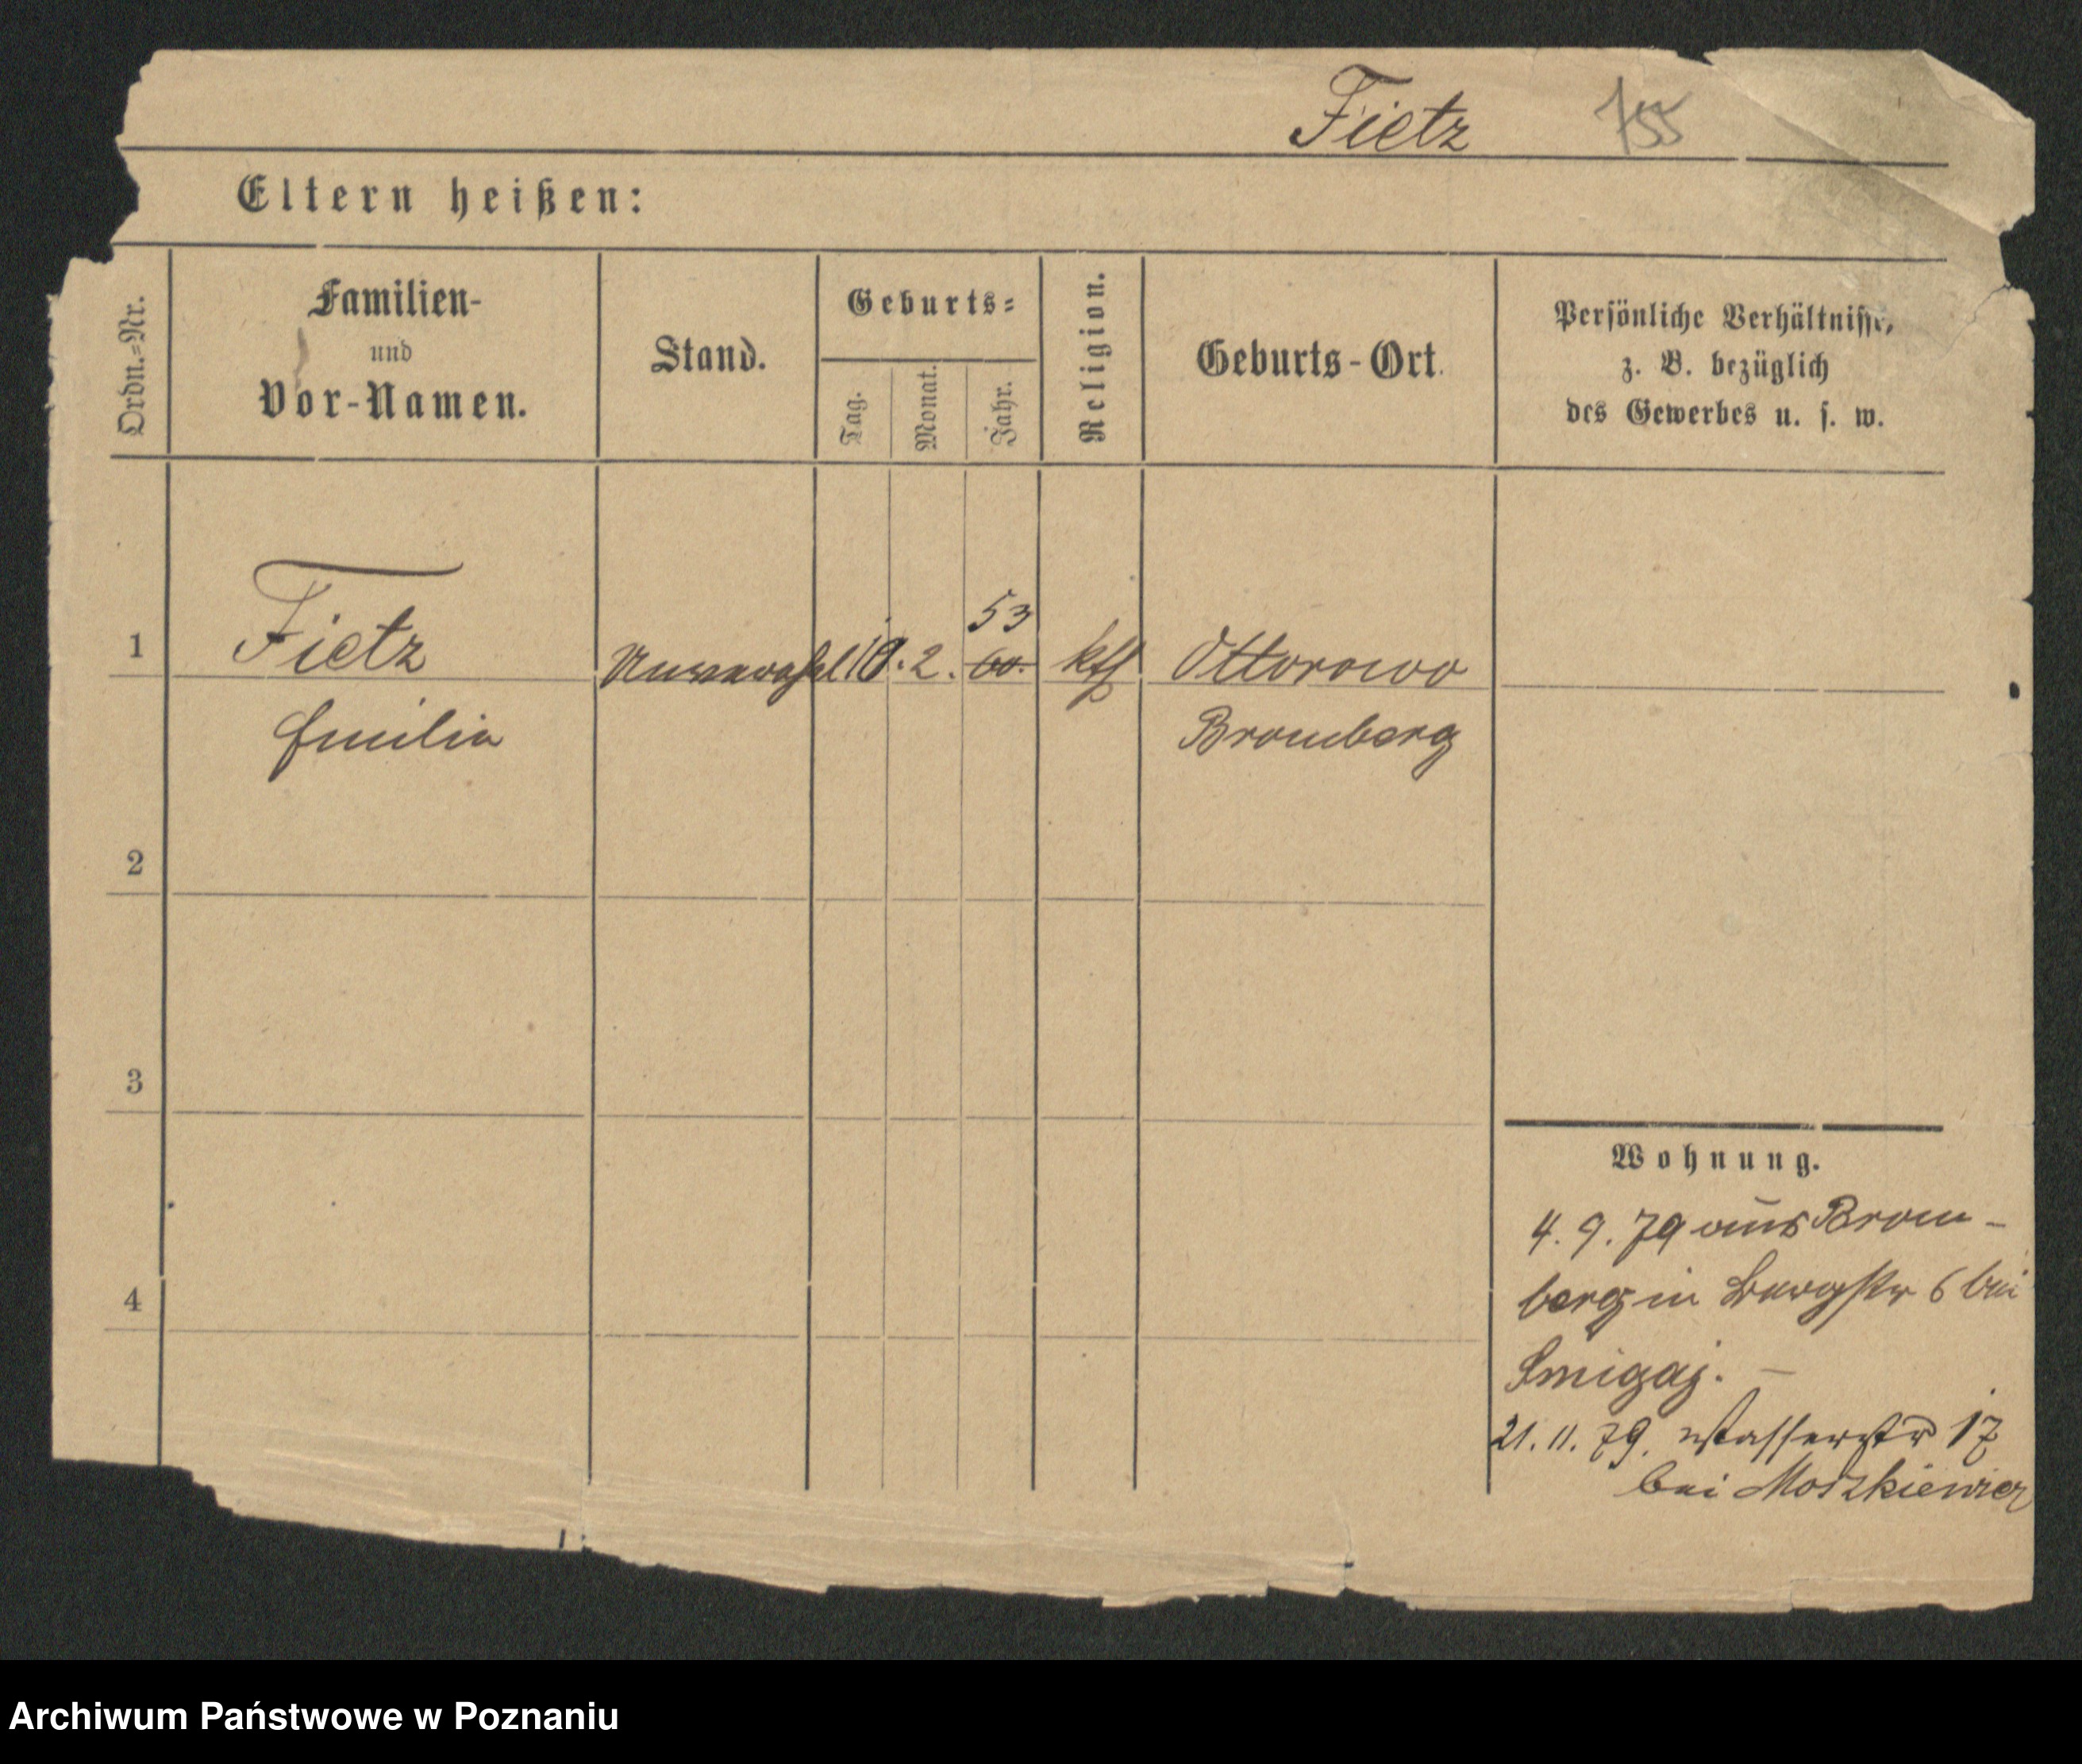 Fietz 755
Eltern heißen:
Ordn.=Nr.
Familien-
und
Vor-Namen.
Stand.
Geburts=
Tag.
Monat.
Jahr.
Religion.
Geburts-Ort.
Persönliche Verhältnisse,
z. B. bezüglich
des Gewerbes u. s. w.
53
1 Fietz Unverehel 10. 2. 60. kth Ottorowo
Emilia Bromberg
2
3
4
Wohnung.
4. 9. 79 aus Brom-
berg in 6 bei
Smigaj. –
21. 11. 79. Wasserstr 17
bei Moszkiewicz
Archiwum Państwowe w Poznaniu